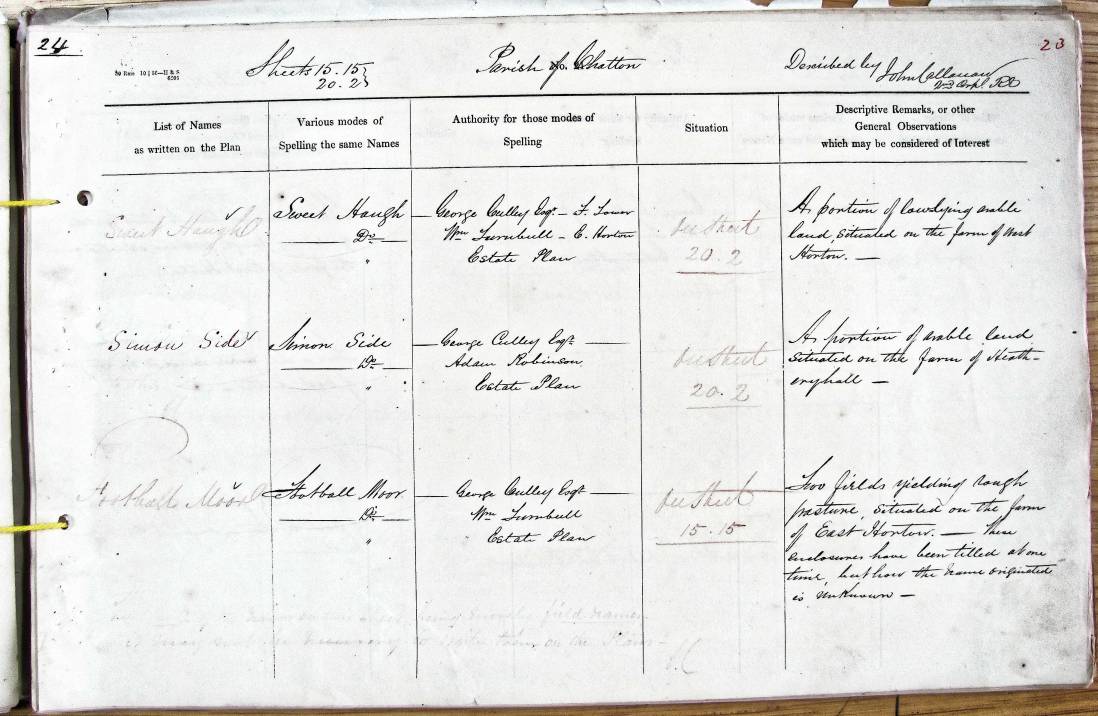 24
23
Sheets 15.15
20.2
Parish of Chatton
Described by John Callanan
2nd Corpl RE
List of Names
as written on the Plan
Various modes of
Spelling the same Names
Authority for those modes of
Spelling
Situation
Descriptive Remarks, or other
General Observations
which may be considered of Interest
Sweet Haugh
Sweet Haugh
Do
"
George Culley Esqr. - F. Tower
Wm Turnbull - E. Horton
Estate Plan
See Sheet
20.2
A portion of low lying arable
land, situated on the farm of West
Horton. —
Simon Side
Simon Side
Do
"
George Culley Esqr.
Adam Robinson
Estate Plan
See Sheet
20.2
A portion of arable land
situated on the farm of Heath-
eryhall —
Football Moor
Football Moor
Do
"
George Culley Esqr
Wm Turnbull
Estate Plan
See Sheet
15.15
Two fields yielding rough
pasture, situated on the farm
of East Horton. — These
enclosures have been tilled at one
time, but how the name originated
is unknown —
being merely field names
it may not be necessary to write them on the Plans -